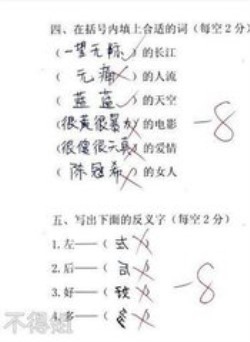 四、在括号内填上合适的词(每空2分)
(一望无际)的长江
(无痛)的人流
(蓝蓝)的天空
(很黄很暴力)的电影
(很傻很天真)的爱情
(陈冠希)的女人
-8
五、写出下面的反义字(每空2分)
1.左——( )
2.后——( )
3.好——( )
4.多——( )
-8
不得姐